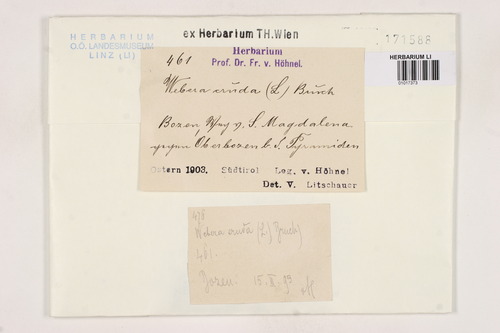 HERBARIUM
O.Ö. LANDESMUSEUM
LINZ (LI)
ex Herbarium TH.Wien
171588
HERBARIUM LI
01017373
461
Herbarium
Prof. Dr. Fr. v. Höhnel.
Webera cruda (L.) Bruch
Bozen, Weg v. S. Magdalena
gegen Oberbozen b. d. Pyramiden
Ostern 1903. Südtirol Leg. v. Höhnel
Det. V. Litschauer
478
Webera cruda (L.) Bruch
461.
Bozen. 15.